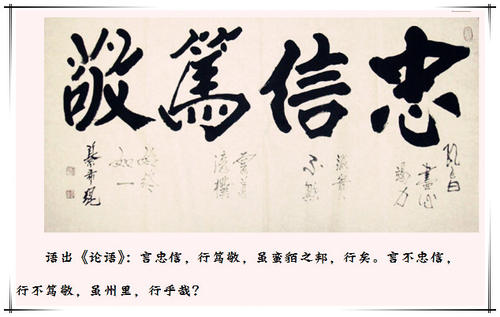 忠信篤敬
不欺
始終
如一
语出《论语》：言忠信，行笃敬，虽蛮貊之邦，行矣。言不忠信，
行不笃敬，虽州里，行乎哉？